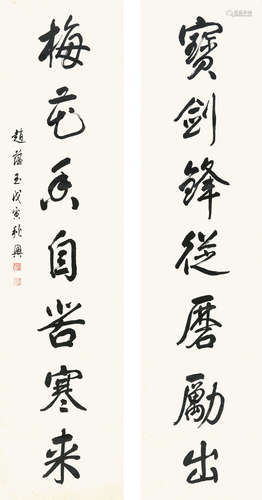 寶劍鋒從磨勵出
梅花香自苦寒來
趙蕴玉戊寅秋興